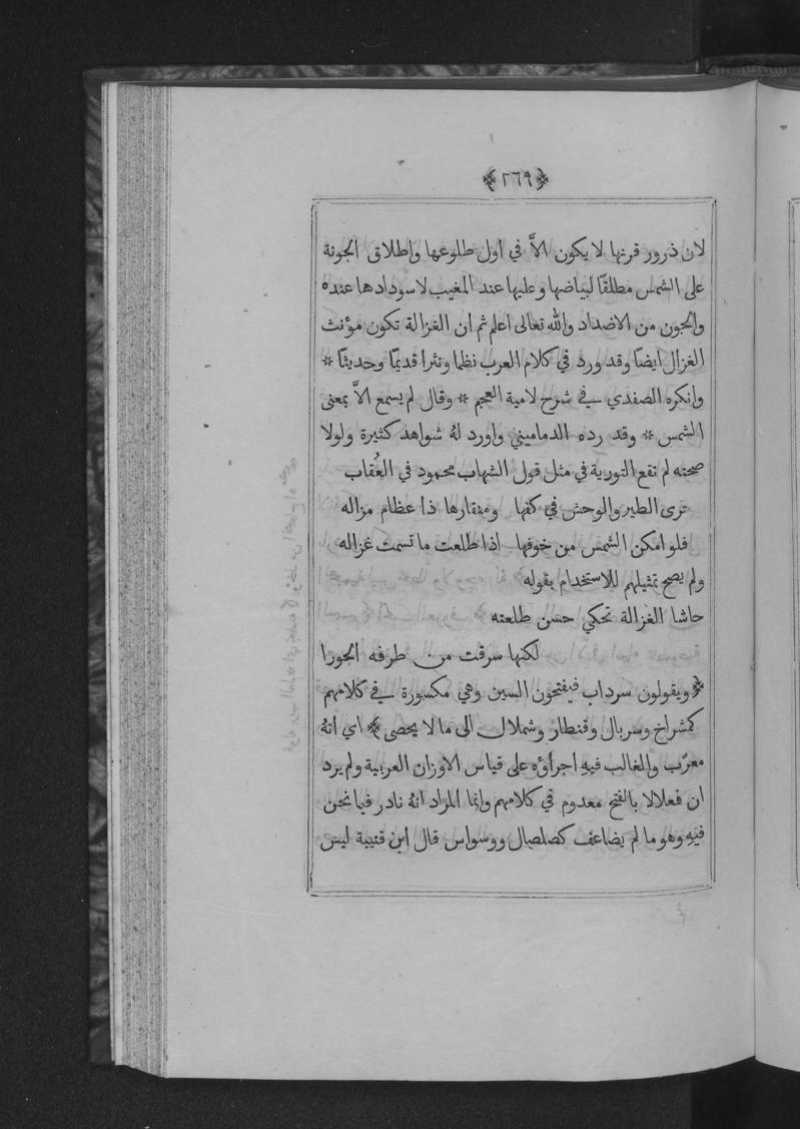 ﴿٢٦٩﴾
لان ذرور قرنها لا يكون الاَّ في اول طلوعها واطلاق الجونة
على الشمس مطلقًا لبياضها وعليها عند المغيب لاسودادها عنده
والجون من الاضداد والله تعالى اعلم ثم ان الغزالة تكون مؤنث
الغزال ايضًا وقد ورد في كلام العرب نظما ونثرا قديمًا وحديثًا *
وانكره الصفدي في شرح لامية العجم * وقال لم يسمع الاَّ بمعنى
الشمس * وقد رده الدماميني واورد لهُ شواهد كثيرة ولولا
صحته لم تقع التورية في مثل قول الشهاب محمود في العُقاب
ترى الطير والوحش في كفها ومنقارها ذا عظام مزاله
فلو امكن الشمس من خوفها اذا طلعت ما تسمت غزاله
ولم يصح تمثيلهم للاستخدام بقوله
حاشا الغزالة تحكي حسن طلعته
لكنها سرقت من طرفه الحورا
﴿ ويقولون سرداب فيفتحون السين وهي مكسورة في كلامهم
كشمراخ وسربال وقنطار وشملال الى ما لا يحصى ﴾ اي انهُ
معرّب والغالب فيهِ اجراؤه على قياس الاوزان العربية ولم يرد
ان فعلالا بالفتح معدوم في كلامهم وانما المراد انهُ نادر فيما نحن
فيهِ وهو ما لم يضاعف كصلصال ووسواس قال ابن قتيبة ليس